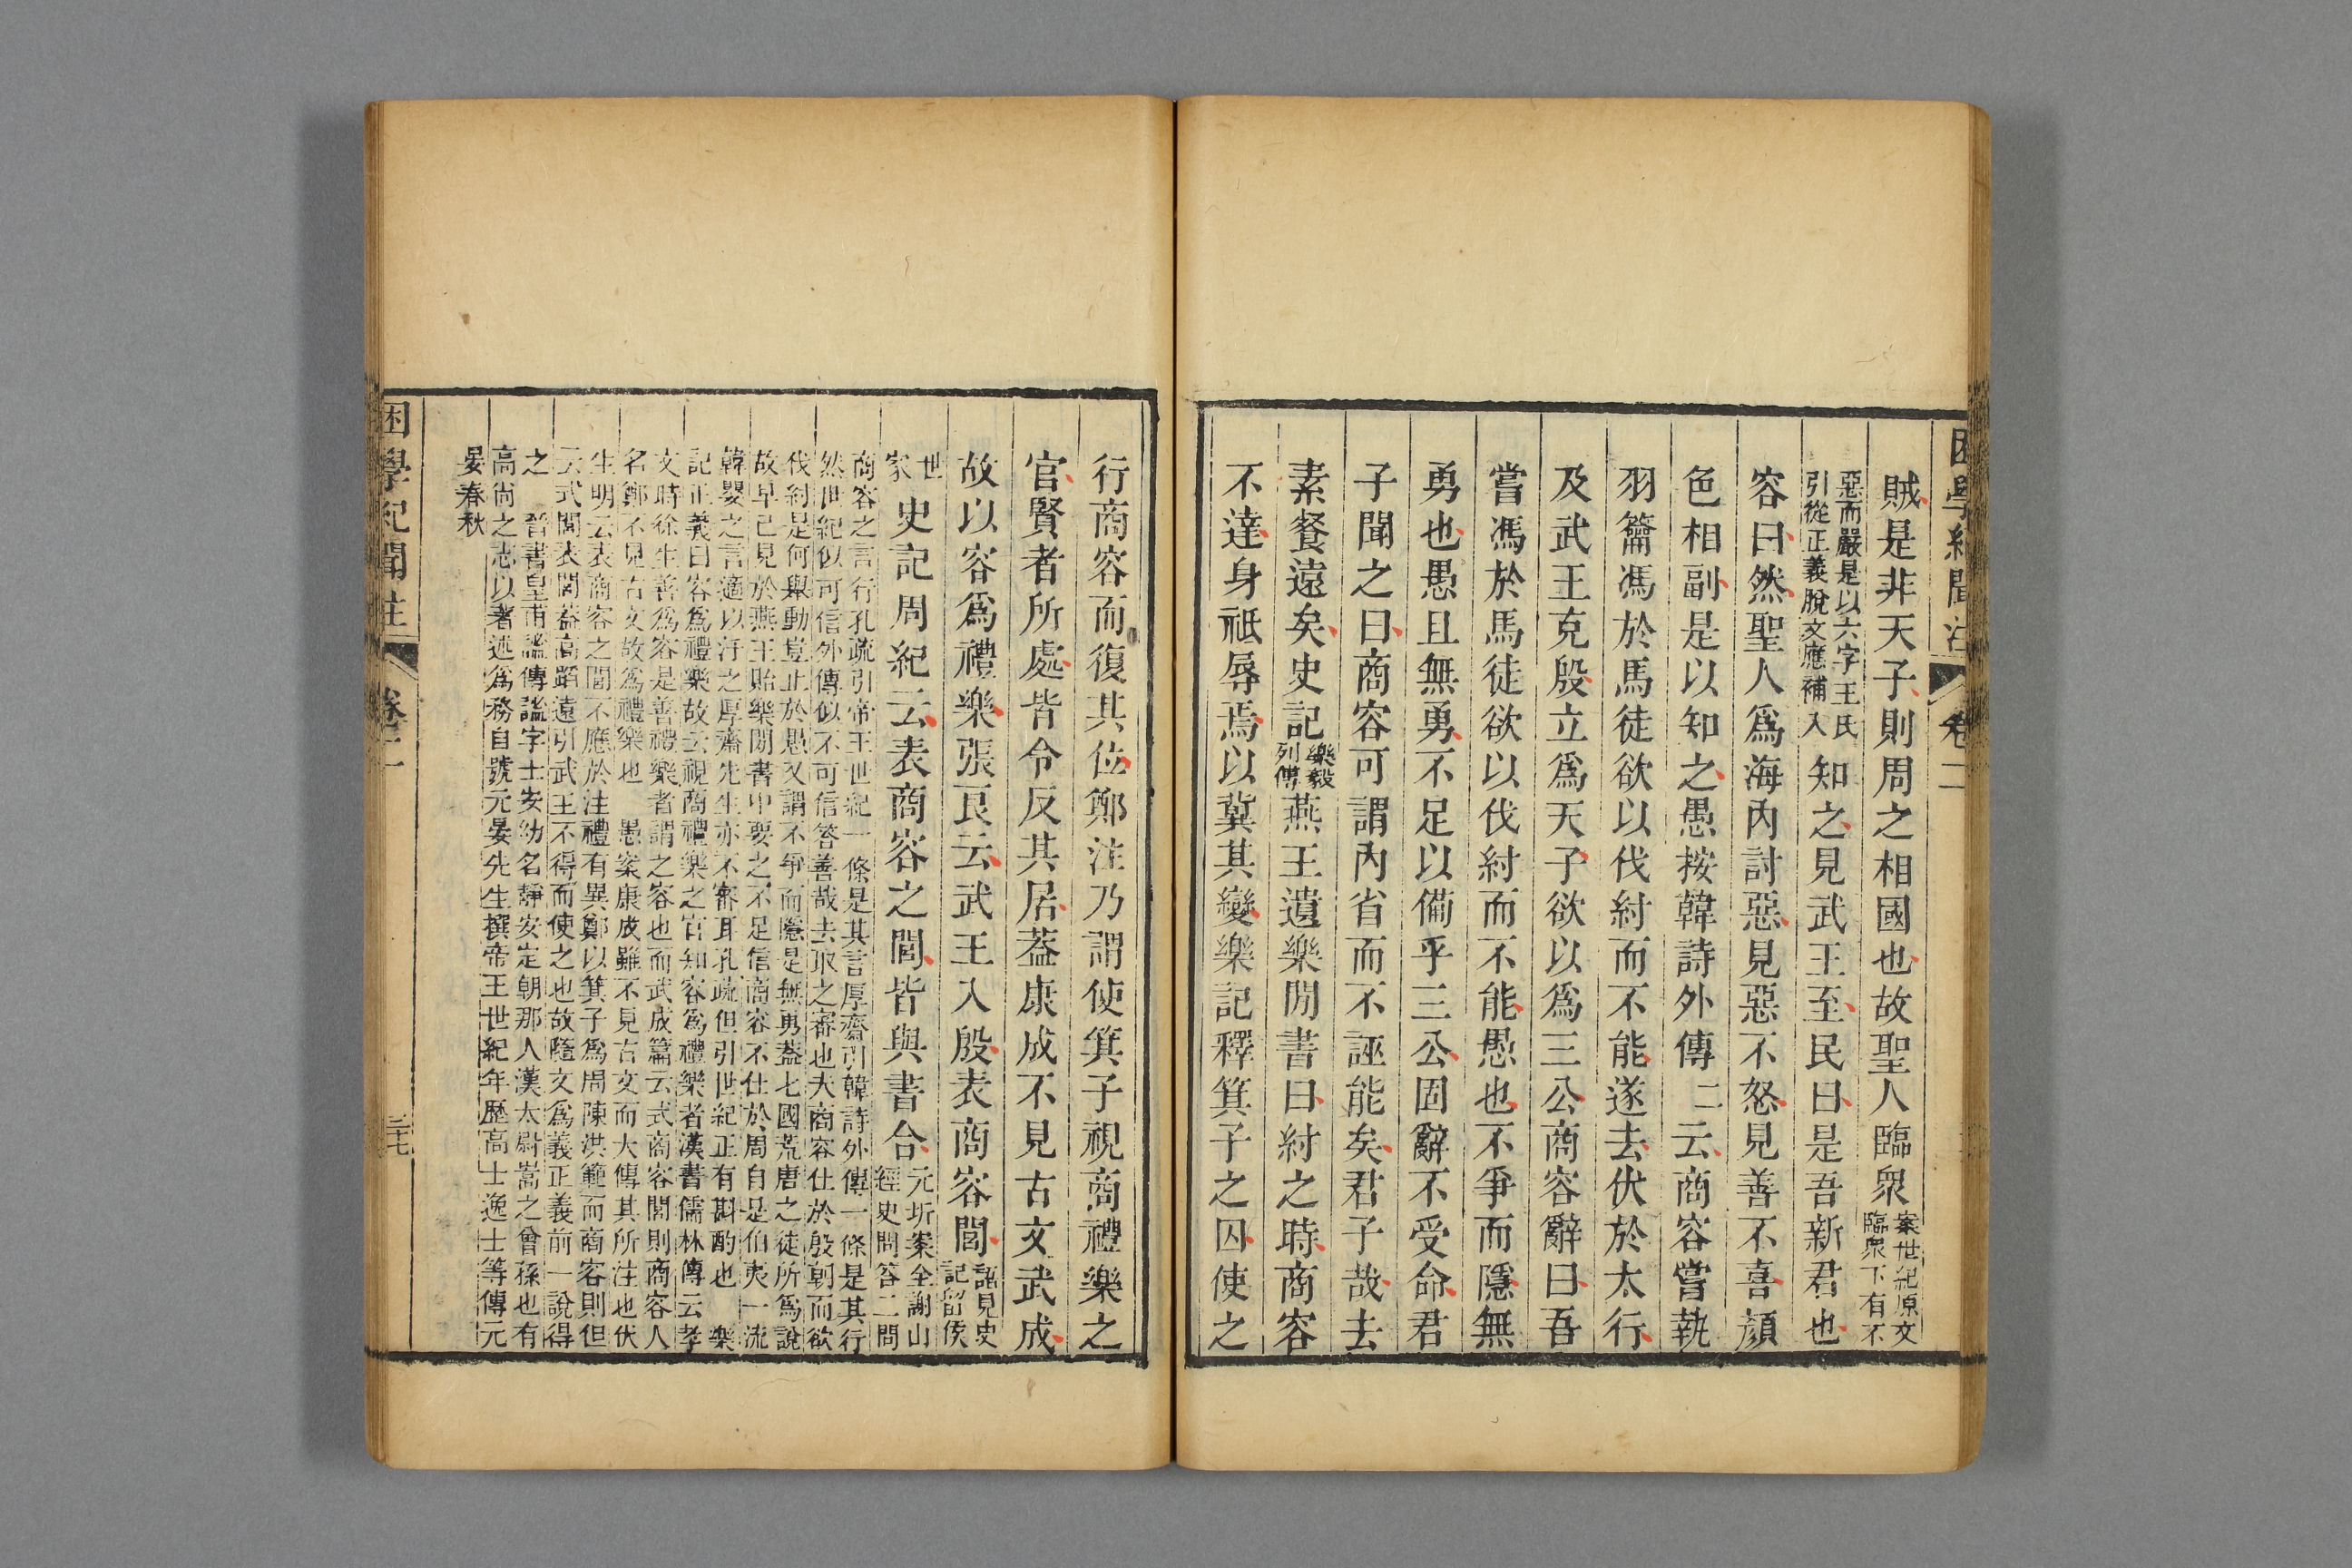 困學紀聞注 卷二
賊是非天子則周之相國也故聖人臨衆案世紀原文臨衆下有不
惡而嚴是以六字王氏引從正義脫文應補入知之見武王至民曰是吾新君也
容曰然聖人爲海內討惡見惡不怒見善不喜顏
色相副是以知之愚按韓詩外傳二云商容嘗執
羽籥馮於馬徒欲以伐紂而不能遂去伏於太行
及武王克殷立爲天子欲以爲三公商容辭曰吾
嘗馮於馬徒欲以伐紂而不能愚也不爭而隱無
勇也愚且無勇不足以備乎三公固辭不受命君
子聞之曰商容可謂內省而不誣能矣君子哉去
素餐遠矣史記樂毅列傳燕王遺樂閒書曰紂之時商容
不達身祇辱焉以冀其變樂記釋箕子之囚使之
行商容而復其位鄭注乃謂使箕子視商禮樂之
官賢者所處皆令反其居葢康成不見古文武成
故以容爲禮樂張良云武王入殷表商容閭語見史記留侯
世家史記周紀云表商容之閭皆與書合元圻案全謝山經史問答二問
商容之言行孔疏引帝王世紀一條是其言厚齋引韓詩外傳一條是其行
然世紀似可信外傳似不可信答善哉去取之審也夫商容仕於殷朝而欲
伐紂是何舉動豈止於愚又謂不爭而隱是無勇葢七國荒唐之徒所爲說
故早已見於燕王貽樂閒書中要之不足信商容不仕於周自是伯夷一流
韓嬰之言適以汙之厚齋先生亦不審耳孔疏但引世紀正有斟酌也 樂
記正義曰容爲禮樂故云視商禮樂之官知容爲禮樂者漢書儒林傳云孝
文時徐生善爲容是善禮樂者謂之容也而武成篇云式商容閭則商容人
名鄭不見古文故爲禮樂也 愚案康成雖不見古文而大傳其所注也伏
生明云表商容之閭不應於注禮有異鄭以箕子爲周陳洪範而商容則但
云式閭表閭葢高蹈遠引武王不得而使之也故隨文爲義正義前一說得
之 晉書皇甫謐傳謐字士安幼名靜安定朝那人漢太尉嵩之曾孫也有
高尙之志以著述爲務自號元晏先生撰帝王世紀年歷高士逸士等傳元
晏春秋
困學紀聞注 卷二 三七